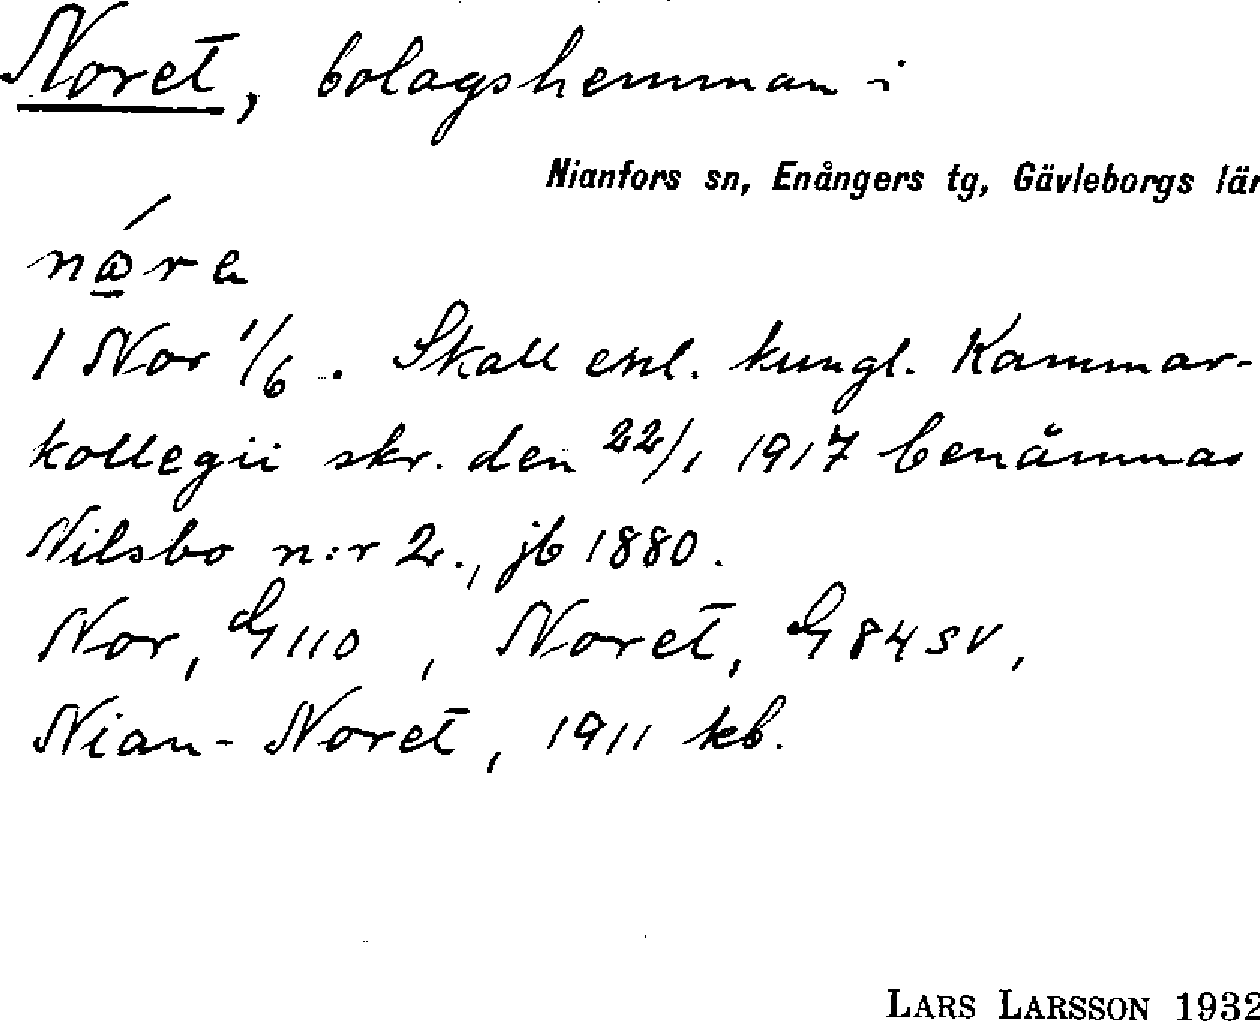 Noret, bolagshemman i
Nianfors sn, Enångers tg, Gävleborgs län
1 Nor 1/6. Skall enl. kungl. Kammar-
kollegii skr. den 22/1 1917 benämnas
Nilsbo n:r 2., jb 1880.
Nor, G 110, Noret, G 84 SV,
Nian-Noret, 1911 kb.
LARS LARSSON 1932